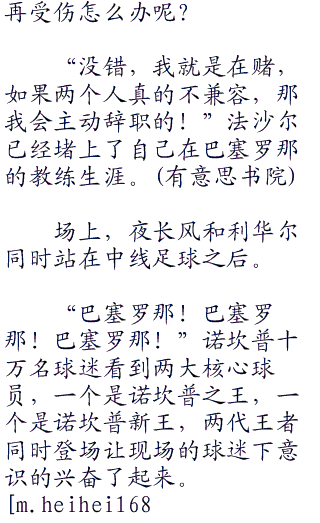 再受伤怎么办呢？
“没错，我就是在赌，
如果两个人真的不兼容，那
我会主动辞职的！”法沙尔
已经堵上了自己在巴塞罗那
的教练生涯。(有意思书院)
场上，夜长风和利华尔
同时站在中线足球之后。
“巴塞罗那！巴塞罗
那！巴塞罗那！”诺坎普十
万名球迷看到两大核心球
员，一个是诺坎普之王，一
个是诺坎普新王，两代王者
同时登场让现场的球迷下意
识的兴奋了起来。
[m.heihei168